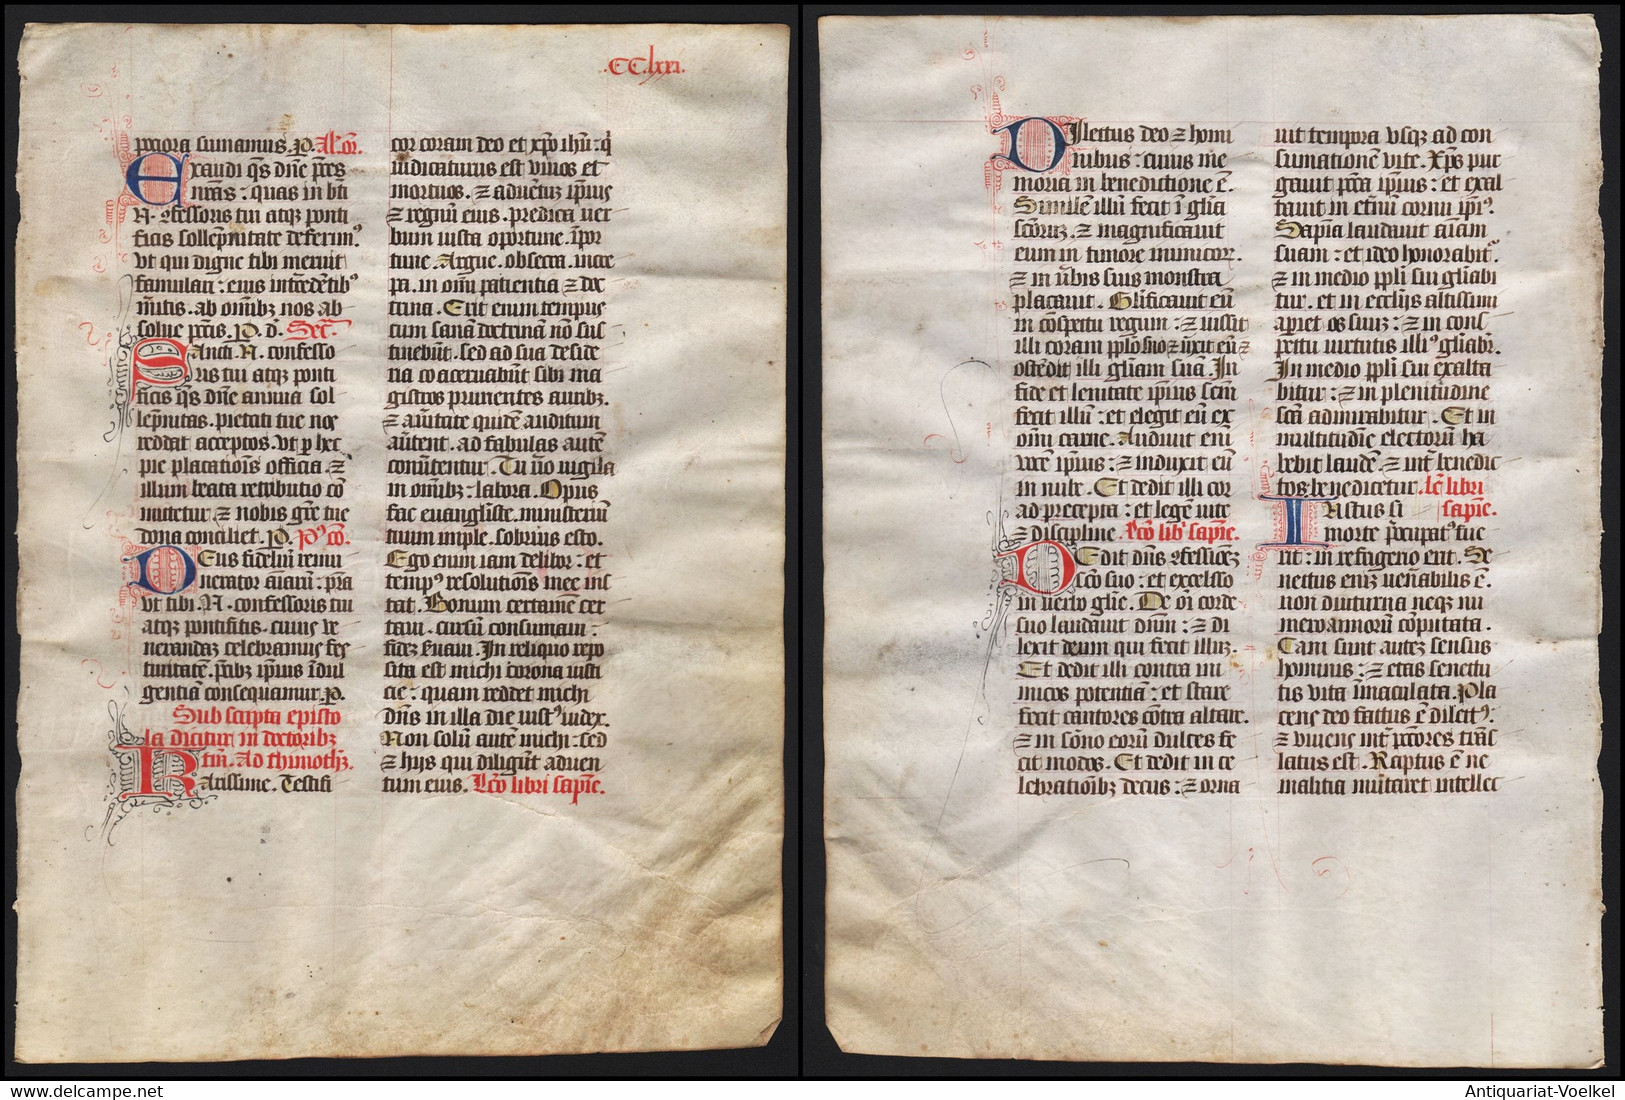 .CC.lxxi.
peciora sumamus. P. Al'. or̄.
Exaudi q̄s dn̄e p̄ces
nr̄as : quas in bt̄i
N. ꝯfessoris tui atqz ponti
ficis sollēpnitate deferim9.
vt qui digne tibi meruit
famulari : eius int̄cedētib9
m̄itis. ab om̄ibz nos ab
solue pccīs. P. d. Secr̄.
Sancti. N. confesso
ris tui atqz ponti
ficis q̄s dn̄e annua sol
lēpnitas. pietati tue nos
reddat acceptos. vt p hec
pie placatiois officia. ⁊
illum beata retributio cō
mitetur. ⁊ nobis grē tue
dona conciliet. P. P9cō.
Deus fidelm̄ remu
nerator aiarū : pra
vt tibi. N. confessoris tui
atqz pontificis. cuius ve
nerandaz celebramus fes
tiuitatē. p̄cibz ip̄ius īdul
gentiā consequamur. P.
Sub scripta episto
la dicitur in doctoribz
tm̄. Ad thimothz.
Karissime. Testifi
cor coram deo et xp̄o ih̄u : q'
iudicaturus est viuos et
mortuos. ⁊ aduētuz ip̄ius
⁊ regnū eius. predica ver
bum insta oportune. īpor
tune. Argue. obsecra. incre
pa. in om̄i patientia ⁊ doc
trina. Erit enim tempus
cum sanā doctrinā nō sus
tinebūt. sed ad sua deside
ria coaceruabūt sibi ma
gistros prurientes auribz.
⁊ a ūitate quidē auditum
auertent. ad fabulas autē
conūtentur. Tu ūo vigila
in om̄ibz : labora. Opus
fac euangliste. ministeriū
tuum imple. sobrius esto.
Ego enim iam delibor : et
temp9 resolutiōis mee ins
tat. Bonum certamē cer
taui. cursū consumaui :
fidez ẜuaui. In reliquo repo
sita est michi corona iusti
cie : quam reddet michi
dn̄s in illa die iust9 iudex.
Non solū autē michi : sed
⁊ hijs qui diligūt aduen
tum eius. Lcō libri sapīe.
Dilectus deo ⁊ homi
nibus : cuius me
moria in benedictione ē.
Similē illū fecit ī glīa
scōruz. ⁊ magnificauit
eum in timore inimicor.
⁊ in ūbis suis monstra
placauit. Glīficauit eū
in cōspectu regum : ⁊ iussit
illi coram pplō suo ⁊ ūxit eū ⁊
ostēdit illi glīam suā. In
fide et lenitate ip̄ius scm̄
fecit illū : et elegit eū ex
om̄i carne. Audiuit enī
vocē ip̄ius : ⁊ induxit eū
in nube. Et dedit illi cor
ad precepta : et legē vite
⁊ discipline. Lcō lib' sapīe.
Dedit dn̄s ꝯfessioez
scō suo : et excelso
in uerbo glīe. De oī corde
suo laudauit dnm̄ : ⁊ di
lexit deum qui fecit illuz.
Et dedit illi contra ini
micos potentiā : et stare
fecit cantores cōtra altare.
⁊ in sōno eorū dulces fe
cit modos. Et dedit in ce
lebratiōibz decus : ⁊ orna
uit tempora vsqz ad con
sumationē vite. Xp̄s pur
gauit pcc̄a ip̄ius : et exal
tauit in et̄nū cornu ip̄i9.
Sapīa laudauit aīam
suam : et ideo honorabit̄
⁊ in medio ppl̄i sui glīabi
tur. et in eccl̄ijs altissimi
apiet os suuz : ⁊ in cons
pectu virtutis illi9 glīabr̄.
In medio ppl̄i sui exalta
bitur : ⁊ in plenitudine
scā admirabitur. Et in
multitudīe electorū ha
bebit laudē. ⁊ int̄ benedic
tos. benedicetur. Lc̄ libri
sapīe.
Iustus si
morte p̄ocupat9 fue
rit : in refrigerio erit. Se
nectus eniz ven̄abilis ē.
non diuturna neqz nu
mero annorū cōputata.
Cani sunt autez sensus
hominis : ⁊ etas senectu
tis vita īmaculata. Pla
cens deo factus ē dilect9.
⁊ viuens int̄ pccōres trās
latus est. Raptus ē ne
malitia mutaret intellec
Antiquariat-Voelkel